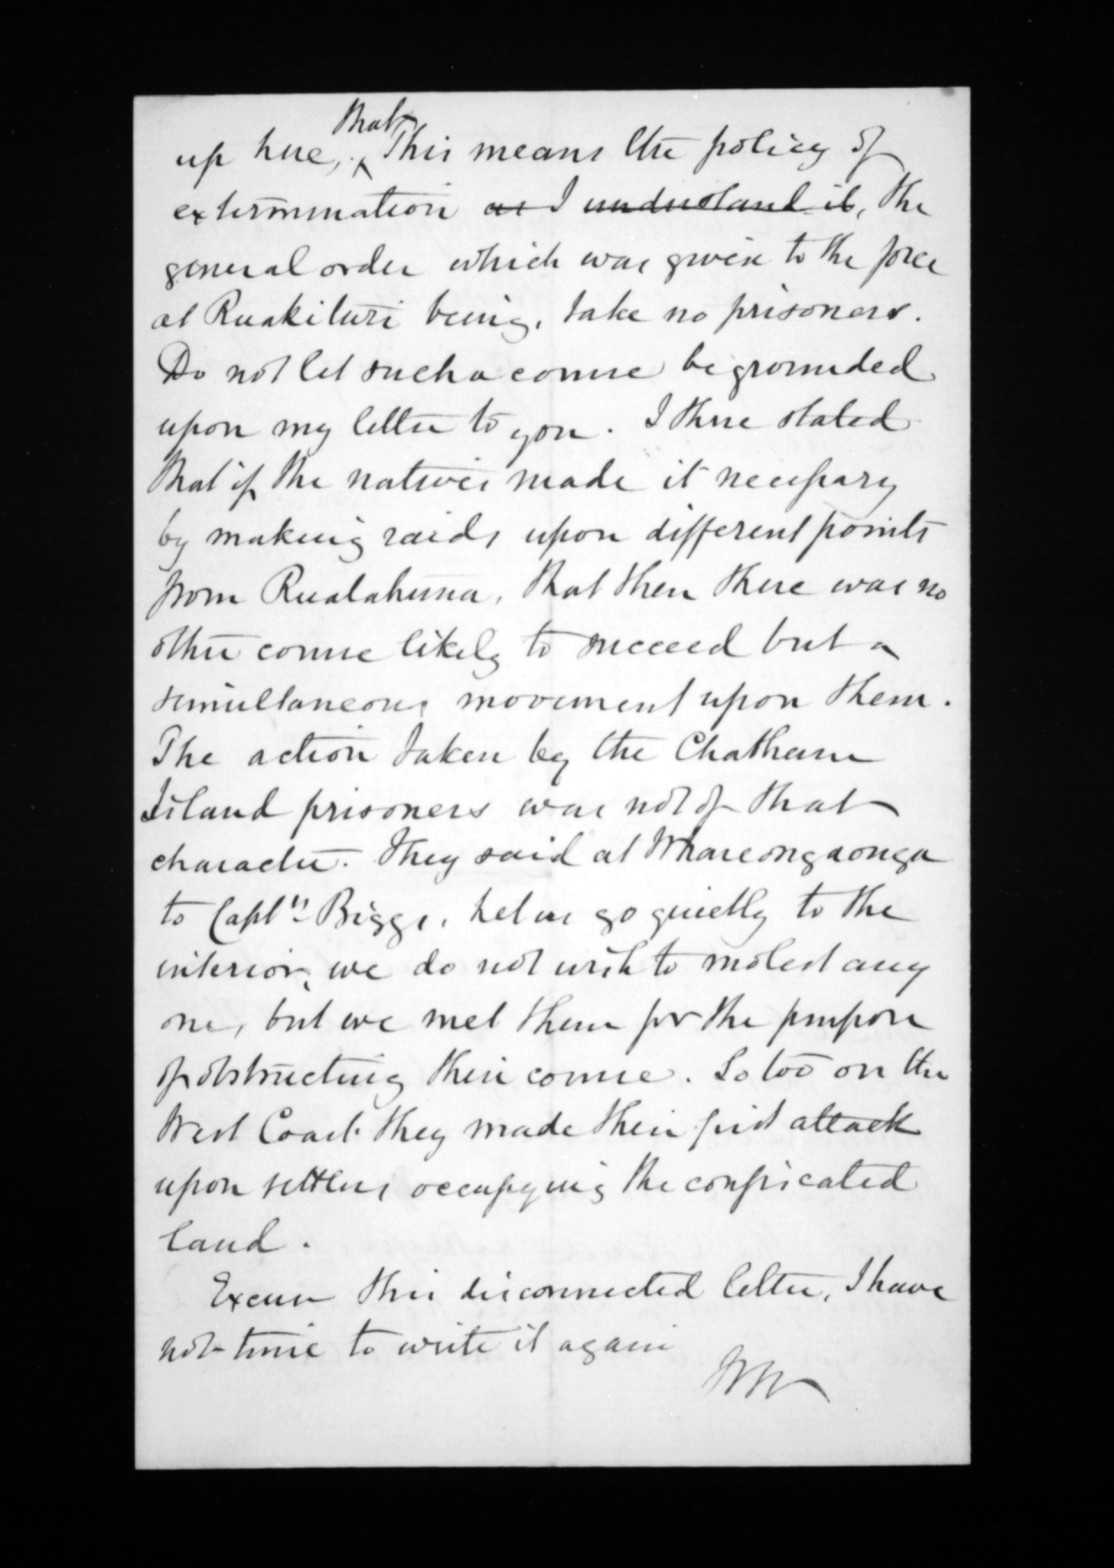 up here, ^that This means the policy of
extermination as I understand it, the
general order which was given to the force
at Ruakituri being, take no prisoners.
Do not let such a course be grounded
upon my letter to you. I there stated
that if the natives made it necessary
by making raids upon different points
from Ruatahuna, that then there was no
other course likely to succeed but a
simultaneous movement upon them.
The action taken by the Chatham
Island prisoners was not of that
character. They said at Whareongaonga
to Captn Biggs, let us go quietly to the
interior, we do not wish to molest any
one, but we met them for the purpose
of obstructing their course. So too on the
West Coast they made their first attack
upon settlers occupying the confiscated
land.
Excuse this disconnected letter, I have
not time to write it again
WW